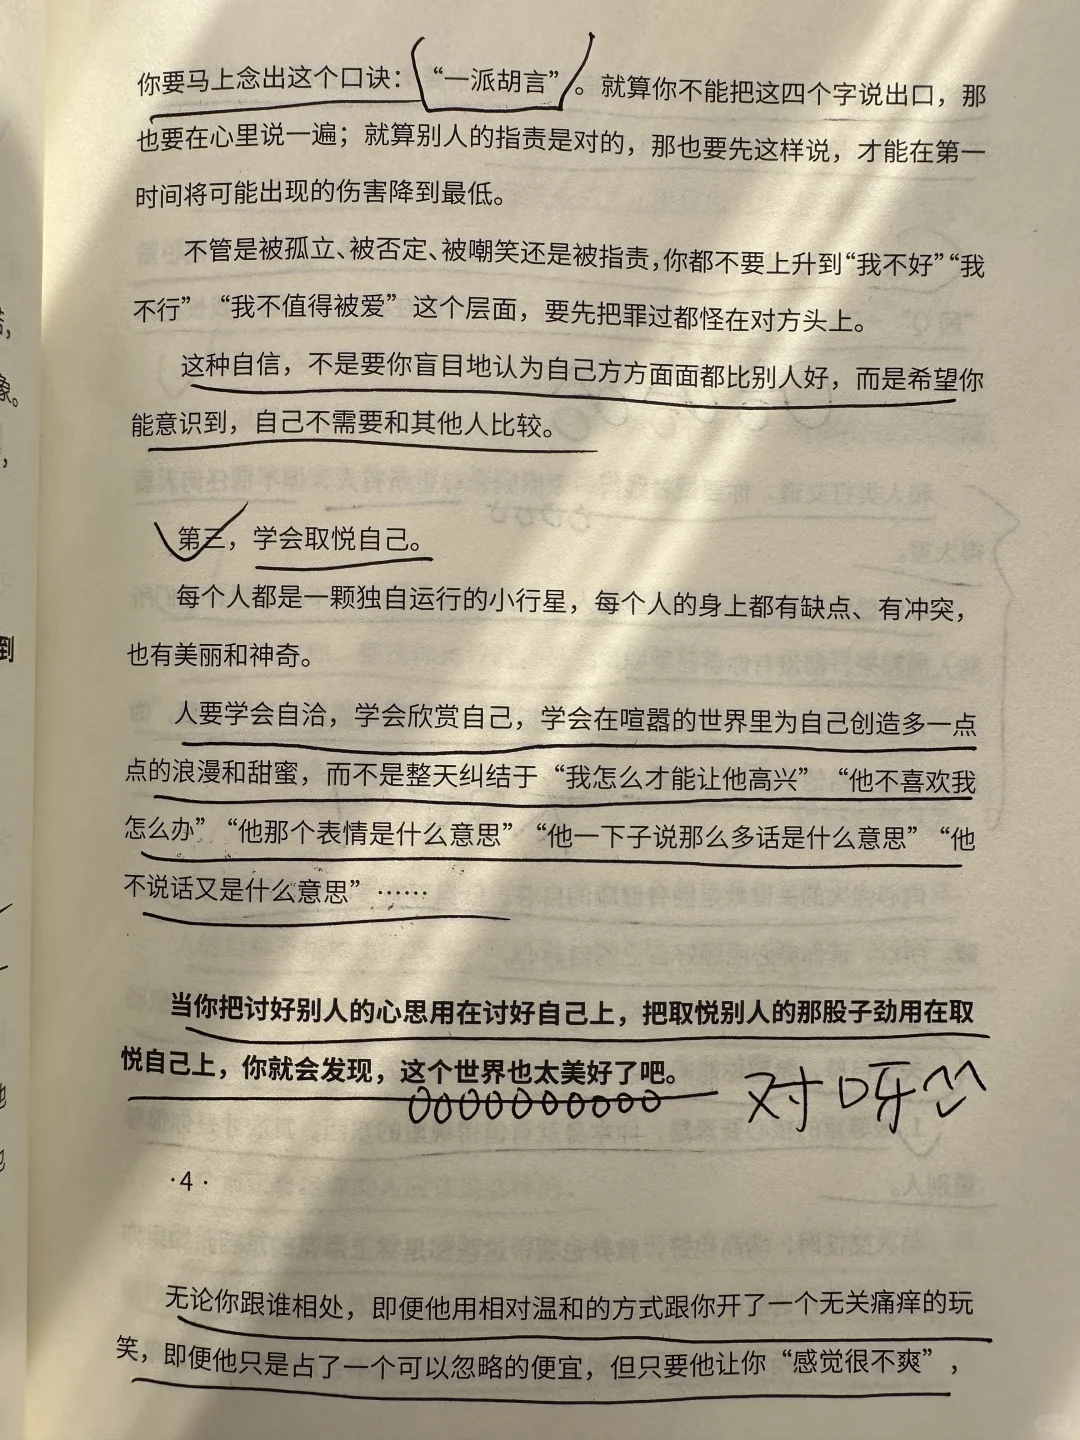 你要马上念出这个口诀：“一派胡言”。就算你不能把这四个字说出口，那
也要在心里说一遍；就算别人的指责是对的，那也要先这样说，才能在第一
时间将可能出现的伤害降到最低。
不管是被孤立、被否定、被嘲笑还是被指责，你都不要上升到“我不好”“我
不行”“我不值得被爱”这个层面，要先把罪过都怪在对方头上。
这种自信，不是要你盲目地认为自己方方面面都比别人好，而是希望你
能意识到，自己不需要和其他人比较。
第三，学会取悦自己。
每个人都是一颗独自运行的小行星，每个人的身上都有缺点、有冲突，
也有美丽和神奇。
人要学会自洽，学会欣赏自己，学会在喧嚣的世界里为自己创造多一点
点的浪漫和甜蜜，而不是整天纠结于“我怎么才能让他高兴”“他不喜欢我
怎么办”“他那个表情是什么意思”“他一下子说那么多话是什么意思”“他
不说话又是什么意思”……
当你把讨好别人的心思用在讨好自己上，把取悦别人的那股子劲用在取
悦自己上，你就会发现，这个世界也太美好了吧。
对呀
·4·
无论你跟谁相处，即便他用相对温和的方式跟你开了一个无关痛痒的玩
笑，即便他只是占了一个可以忽略的便宜，但只要他让你“感觉很不爽”，